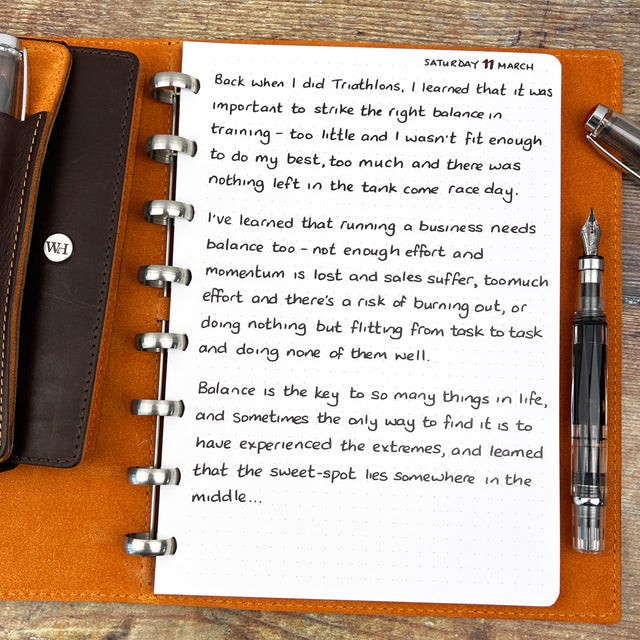 SATURDAY 11 MARCH
Back when I did Triathlons, I learned that it was
important to strike the right balance in
training - too little and I wasn't fit enough
to do my best, too much and there was
nothing left in the tank come race day.
I've learned that running a business needs
balance too - not enough effort and
momentum is lost and sales suffer, too much
effort and there's a risk of burning out, or
doing nothing but flitting from task to task
and doing none of them well.
Balance is the key to so many things in life,
and sometimes the only way to find it is to
have experienced the extremes, and learned
that the sweet-spot lies somewhere in the
middle...
WH